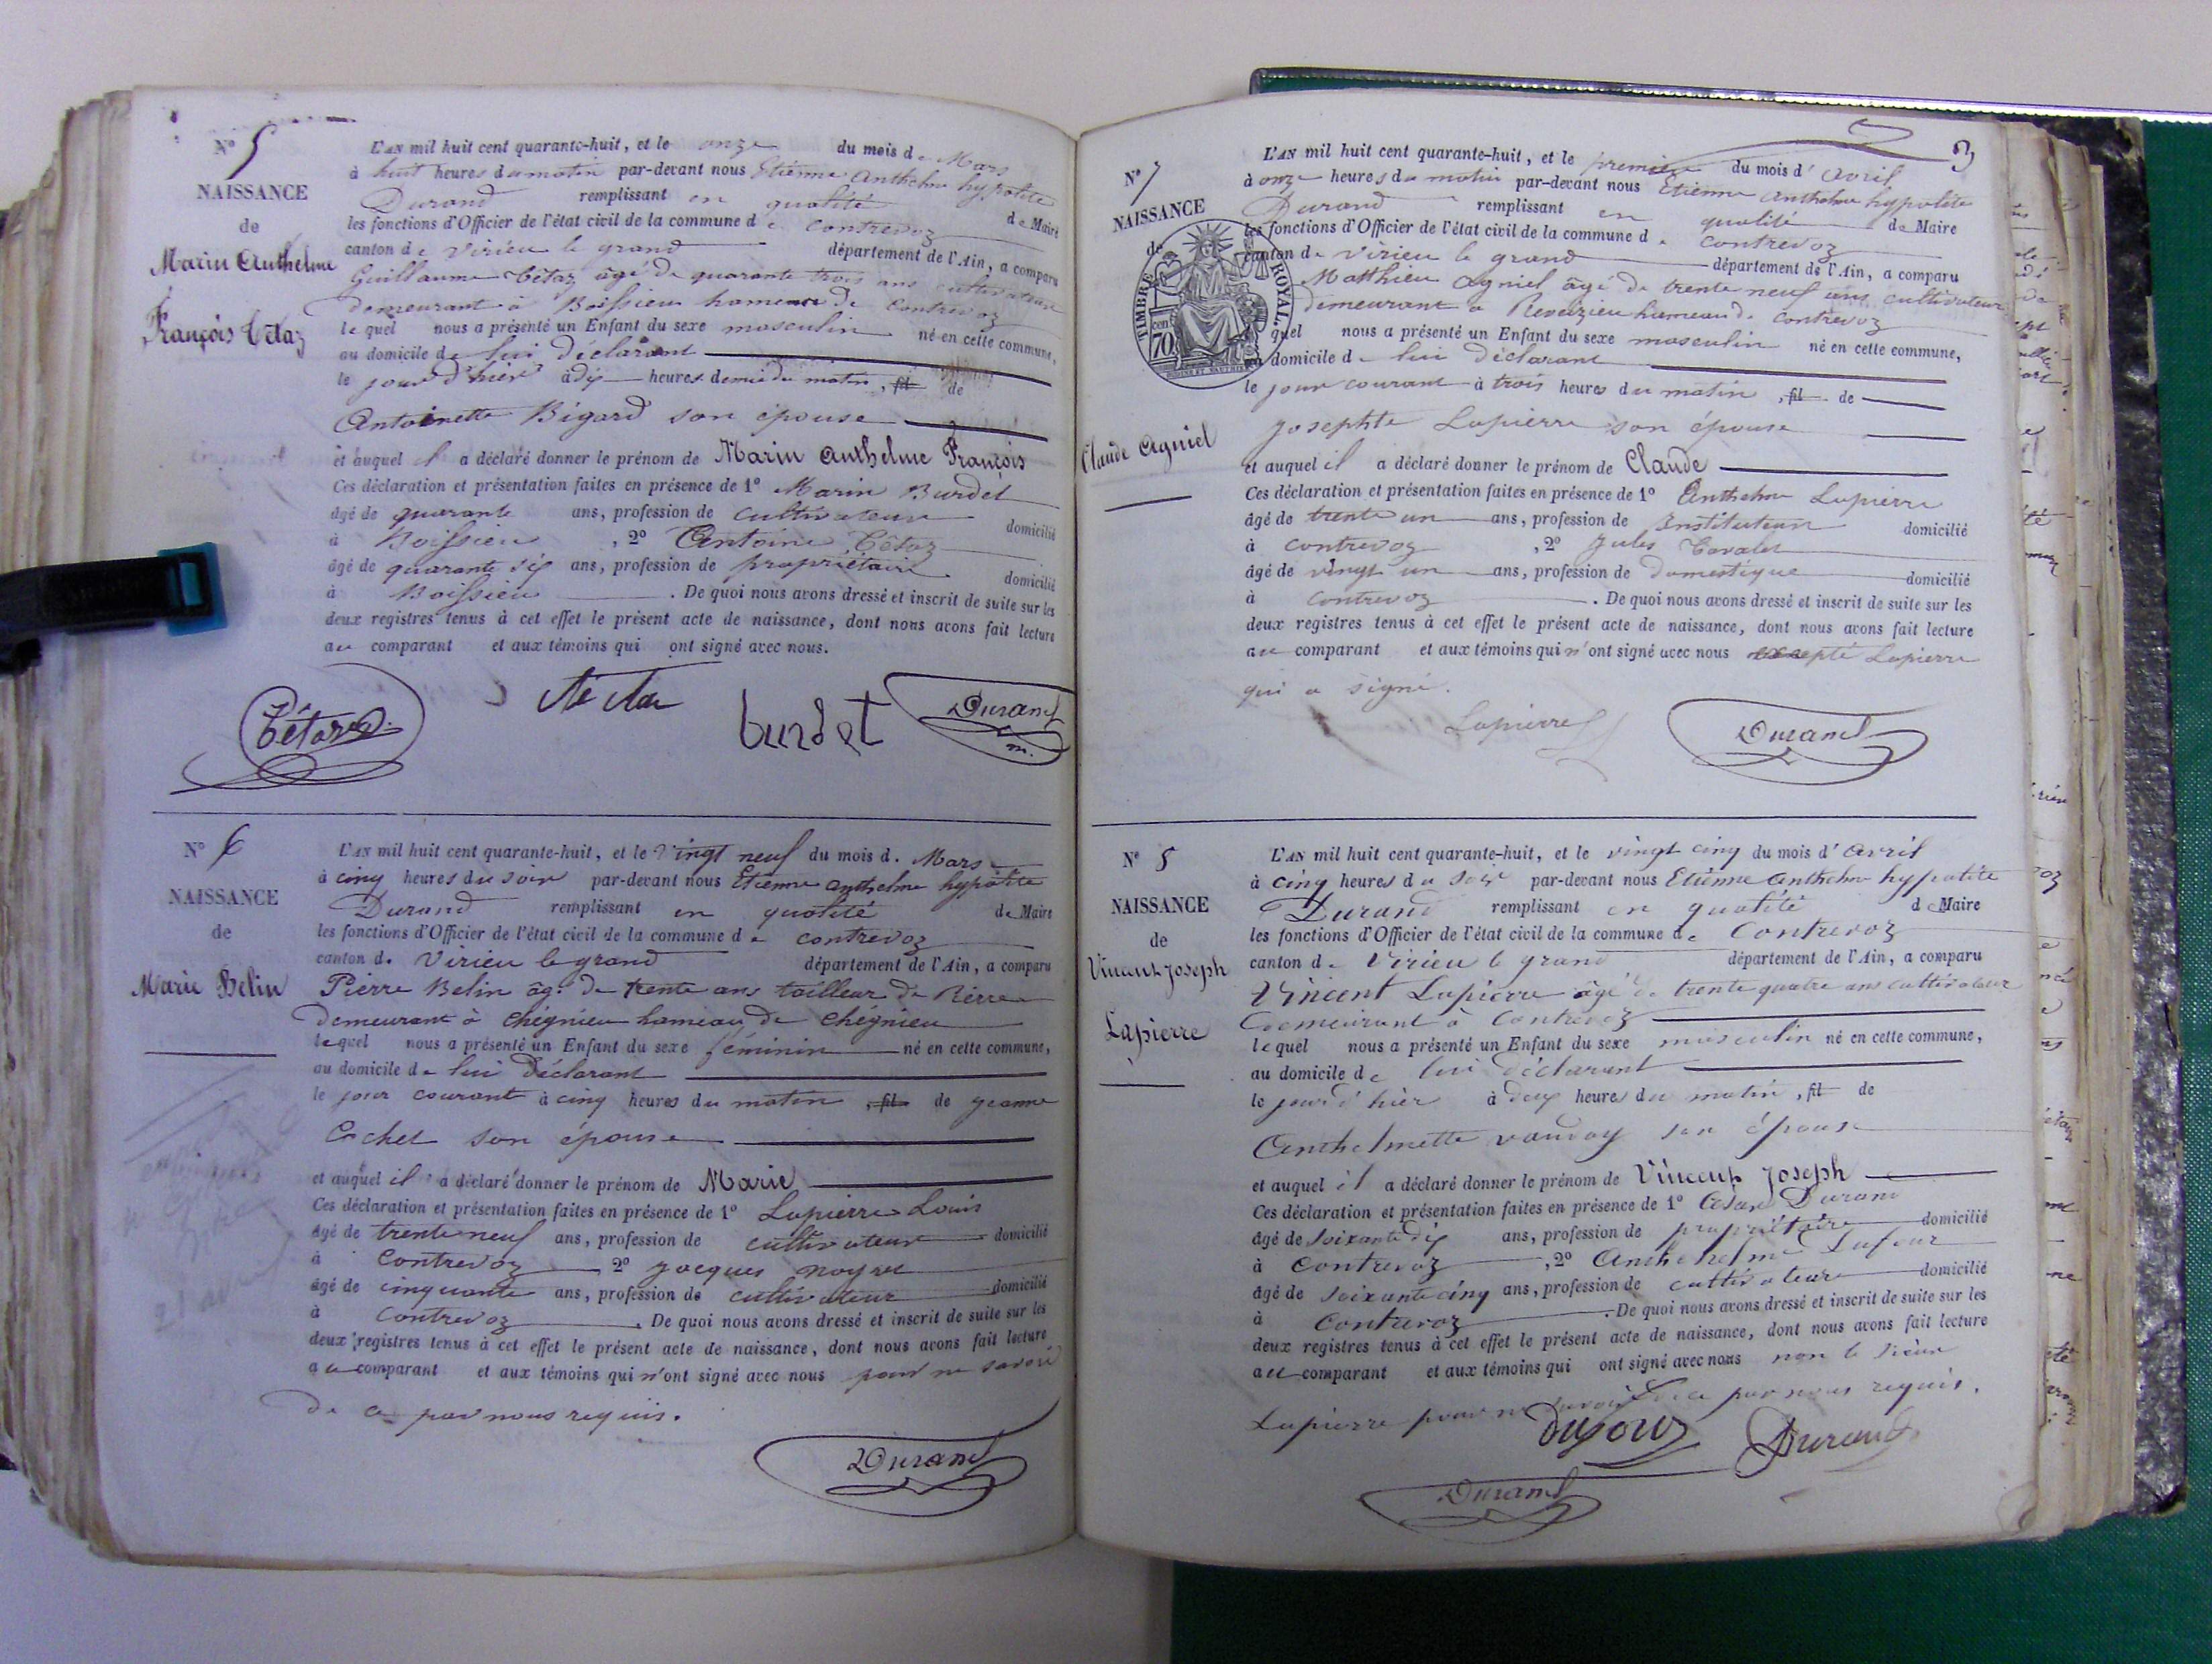 N° 5
NAISSANCE
de
Marin Anthelme
François Tétaz
L'AN mil huit cent quarante-huit, et le onze du mois de Mars
à huit heures du matin par-devant nous Etienne Anthelme hypolite
Durand remplissant en qualité de Maire
les fonctions d'Officier de l'état civil de la commune de Contrevoz
canton de Virieu le grand département de l'Ain, a comparu
Guillaume Tétaz âgé de quarante trois ans cultivateur
demeurant à Boissieu hameau de Contrevoz
lequel nous a présenté un Enfant du sexe masculin né en cette commune,
au domicile de lui déclarant
le jour d'hier à dix heures demie du matin, fil de
Antoinette Bigard son épouse
et auquel il a déclaré donner le prénom de Marin Anthelme François
Ces déclaration et présentation faites en présence de 1° Marin Burdet
âgé de quarante ans, profession de cultivateur domicilié
à Boissieu, 2° Antoine Tétaz
âgé de quarante six ans, profession de propriétaire domicilié
à Boissieu. De quoi nous avons dressé et inscrit de suite sur les
deux registres tenus à cet effet le présent acte de naissance, dont nous avons fait lecture
au comparant et aux témoins qui ont signé avec nous.
Tétaz burdet Durand
m.
N° 6
NAISSANCE
de
Marie Belin
L'AN mil huit cent quarante-huit, et le vingt neuf du mois d. Mars
à cinq heures du soir par-devant nous Etienne anthelme hypolite
Durand remplissant en qualité de Maire
les fonctions d'Officier de l'état civil de la commune de contrevoz
canton d. Virieu le grand département de l'Ain, a comparu
Pierre Belin âgé de trente ans tailleur de Pierre
demeurant à chégnieu hameau de chégnieu
lequel nous a présenté un Enfant du sexe féminin né en cette commune,
au domicile de lui déclarant
le jour courant à cinq heures du matin, fil de jeanne
Cochet son épouse
et auquel il a déclaré donner le prénom de Marie
Ces déclaration et présentation faites en présence de 1° Lapierre Louis
âgé de trente neuf ans, profession de cultivateur domicilié
à Contrevoz 2° jacques
âgé de cinquante ans, profession de cultivateur domicilié
à contrevoz. De quoi nous avons dressé et inscrit de suite sur les
deux registres tenus à cet effet le présent acte de naissance, dont nous avons fait lecture
au comparant et aux témoins qui n'ont signé avec nous pour ne savoir
de ce par nous requis.
Durand
3
N° 7
NAISSANCE
de
TIMBRE ROYAL.
cen 70
Claude Agniel
L'AN mil huit cent quarante-huit, et le premier du mois d'avril
à onze heures du matin par-devant nous Etienne anthelme hypolite
Durand remplissant en qualité de Maire
les fonctions d'Officier de l'état civil de la commune d. contrevoz
canton de Virieu le grand département de l'Ain, a comparu
Matthieu Agniel âgé de trente neuf ans cultivateur
demeurant à Revelzieu hameau d. contrevoz
quel nous a présenté un Enfant du sexe masculin né en cette commune,
domicile de lui déclarant
le jour courant à trois heures du matin, fil de
josephte Lapierre son épouse
et auquel il a déclaré donner le prénom de Claude
Ces déclaration et présentation faites en présence de 1° Anthelme Lapierre
âgé de trente un ans, profession de Instituteur domicilié
à contrevoz, 2° Jules
âgé de vingt un ans, profession de domestique domicilié
à contrevoz. De quoi nous avons dressé et inscrit de suite sur les
deux registres tenus à cet effet le présent acte de naissance, dont nous avons fait lecture
au comparant et aux témoins qui n'ont signé avec nous excepté Lapierre
qui a signé.
Lapierre Durand
N° 8
NAISSANCE
de
Vincent Joseph
Lapierre
L'AN mil huit cent quarante-huit, et le vingt cinq du mois d'avril
à cinq heures du soir par-devant nous Etienne Anthelme hypolite
Durand remplissant en qualité d Maire
les fonctions d'Officier de l'état civil de la commune de Contrevoz
canton de Virieu le grand département de l'Ain, a comparu
Vincent Lapierre âgé de trente quatre ans cultivateur
demeurant à Contrevoz
lequel nous a présenté un Enfant du sexe masculin né en cette commune,
au domicile de lui déclarant
le jour d'hier à deux heures du matin, fil de
Anthelmette son épouse
et auquel il a déclaré donner le prénom de Vincent Joseph
Ces déclaration et présentation faites en présence de 1° César Durand
âgé de soixante dix ans, profession de propriétaire domicilié
à Contrevoz, 2° Anthelme Dufour
âgé de soixante cinq ans, profession de cultivateur domicilié
à Contrevoz. De quoi nous avons dressé et inscrit de suite sur les
deux registres tenus à cet effet le présent acte de naissance, dont nous avons fait lecture
au comparant et aux témoins qui ont signé avec nous non le sieur
Lapierre pour ne savoir de ce par nous requis.
Dufour Durand
Durand